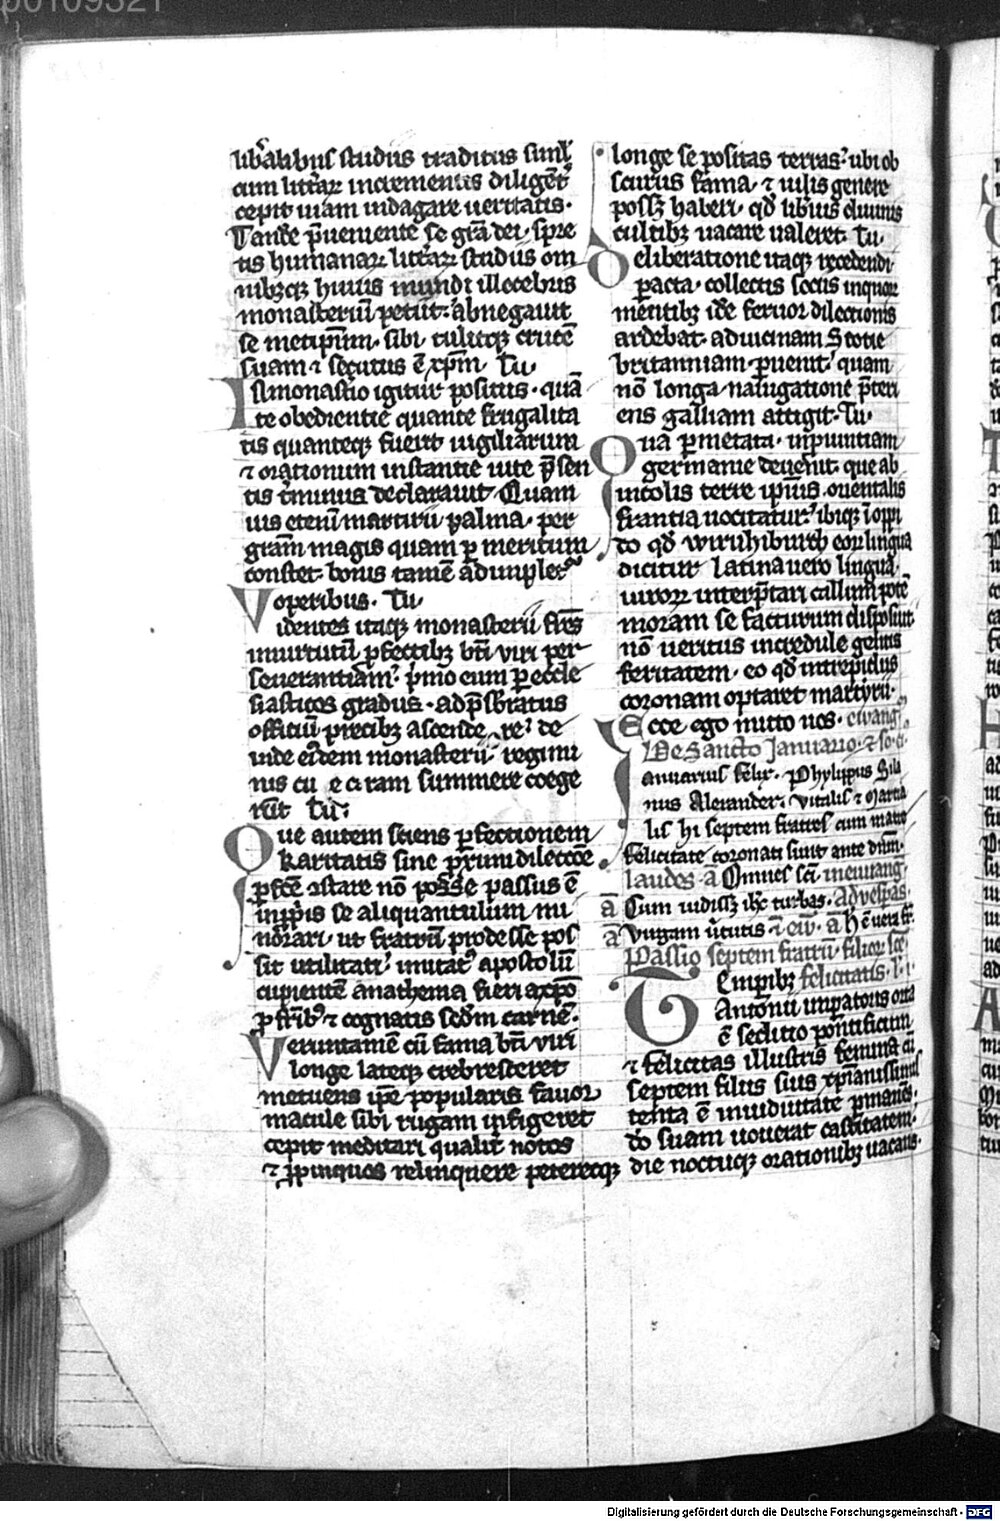 libalibus studiis traditus simul
cum litterar incrementis diligent
cepit viam indagare veritatis.
Tande pveniente se gra dei. spre
tis humanar litterar studiis om
nibzqz huius mundi illecebris
monasteriu petiit. abnegavit
se metipsum. sibi. tulitqz cruce
suam ⁊ secutus e xpm. Tu
In monastio igitur positus. qua
te obedientie quante frugalita
tis quanteqz fuerit vigiliarum
⁊ orationum instantie vite psen
tis tminus declaravit. Quam
vis etenim martirii palma. per
gram magis quam p meritum
constet. bonis tamen adimplet
operibus. Tu
Videntes itaqz monasterii fres
invirtutu pfectibz bti viri per
severantiam. pmo eum p eccle
siasticos gradus. ad psbratus
officiu precibz ascendere. de
inde eidem monasterii regimi
nis cu e ca ram summere coege
runt Tu.
Qui autem sciens pfectionem
karitatis sine pximi dilectione
pfce ꝯstare no posse passus e
inppis se aliquantulum mi
norari. ut fratru prodesse pos
sit utilitati. imitat apostolu
cupiente anathema fieri a xpo
p frib ⁊ cognatis scdm carne.
Veruntame cu fama bti viri
longe lateqz crebresceret
metuens ipe popularis favor
macule sibi rugam infigeret
cepit meditari qualit notos
⁊ ppinquos relinquere peteretqz
longe se positas terras. ubi ob
scurus fama. ⁊ vilis genere
possz haberi. qd libius divinis
cultibz vacare valeret. Tu.
Deliberatione itaqz recedendi
pacta. collectis sociis in quor
mentibz ide fervor dilectionis
ardebat. ad vicinam Scotie
britanniam pvenit. quam
no longa navigatione pteri
ens galliam attigit. Tu.
Qua pmetata. in pvintiam
germanie devenit. que ab
incolis terre ipius. orientalis
francia vocitatur. ibiqz i oppi
do qd wirzhiburch eor lingua
dicitur latina vero lingua.
viror interptari callium pote
moram se facturum disposuit.
no veritus incredule gentis
feritatem. eo qd intrepidus
coronam optaret martyrii.
Ecce ego mitto vos. ewang
De Sancto Januario. ⁊ so. ei.
Januarius felix. Phylippus Sil
nus Alexander. vitalis ⁊ Marcia
lis hi septem fratres cum matre
felicitate coronati sunt ante dnm.
laudes. a Omnes sci in ewang
a Cum vidissz ihc turbas. Ad vesperas
a Virgam virtutis ⁊ ew. a hec e vera fr.
Passio septem fratru filior sce
Tempibz felicitatis. l. i
Antonii impatoris orta
e seditio pontificum
⁊ felicitas illustris femina cu
septem filiis suis xpianissimis
tenta e in viduitate pmanes.
do suam voverat castitatem.
die noctuqz orationibz vacans.
Digitalisierung gefördert durch die Deutsche Forschungsgemeinschaft - DFG